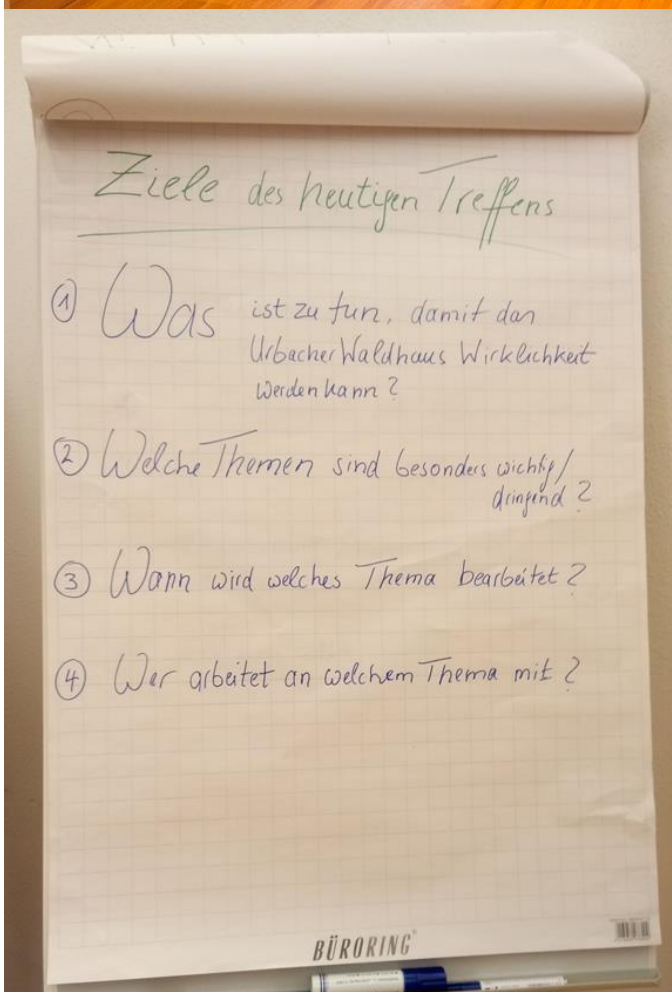 Ziele des heutigen Treffens
① Was ist zu tun, damit das
Urbacher Waldhaus Wirklichkeit
werden kann?
② Welche Themen sind besonders wichtig/
dringend?
③ Wann wird welches Thema bearbeitet?
④ Wer arbeitet an welchem Thema mit?
BÜRORING